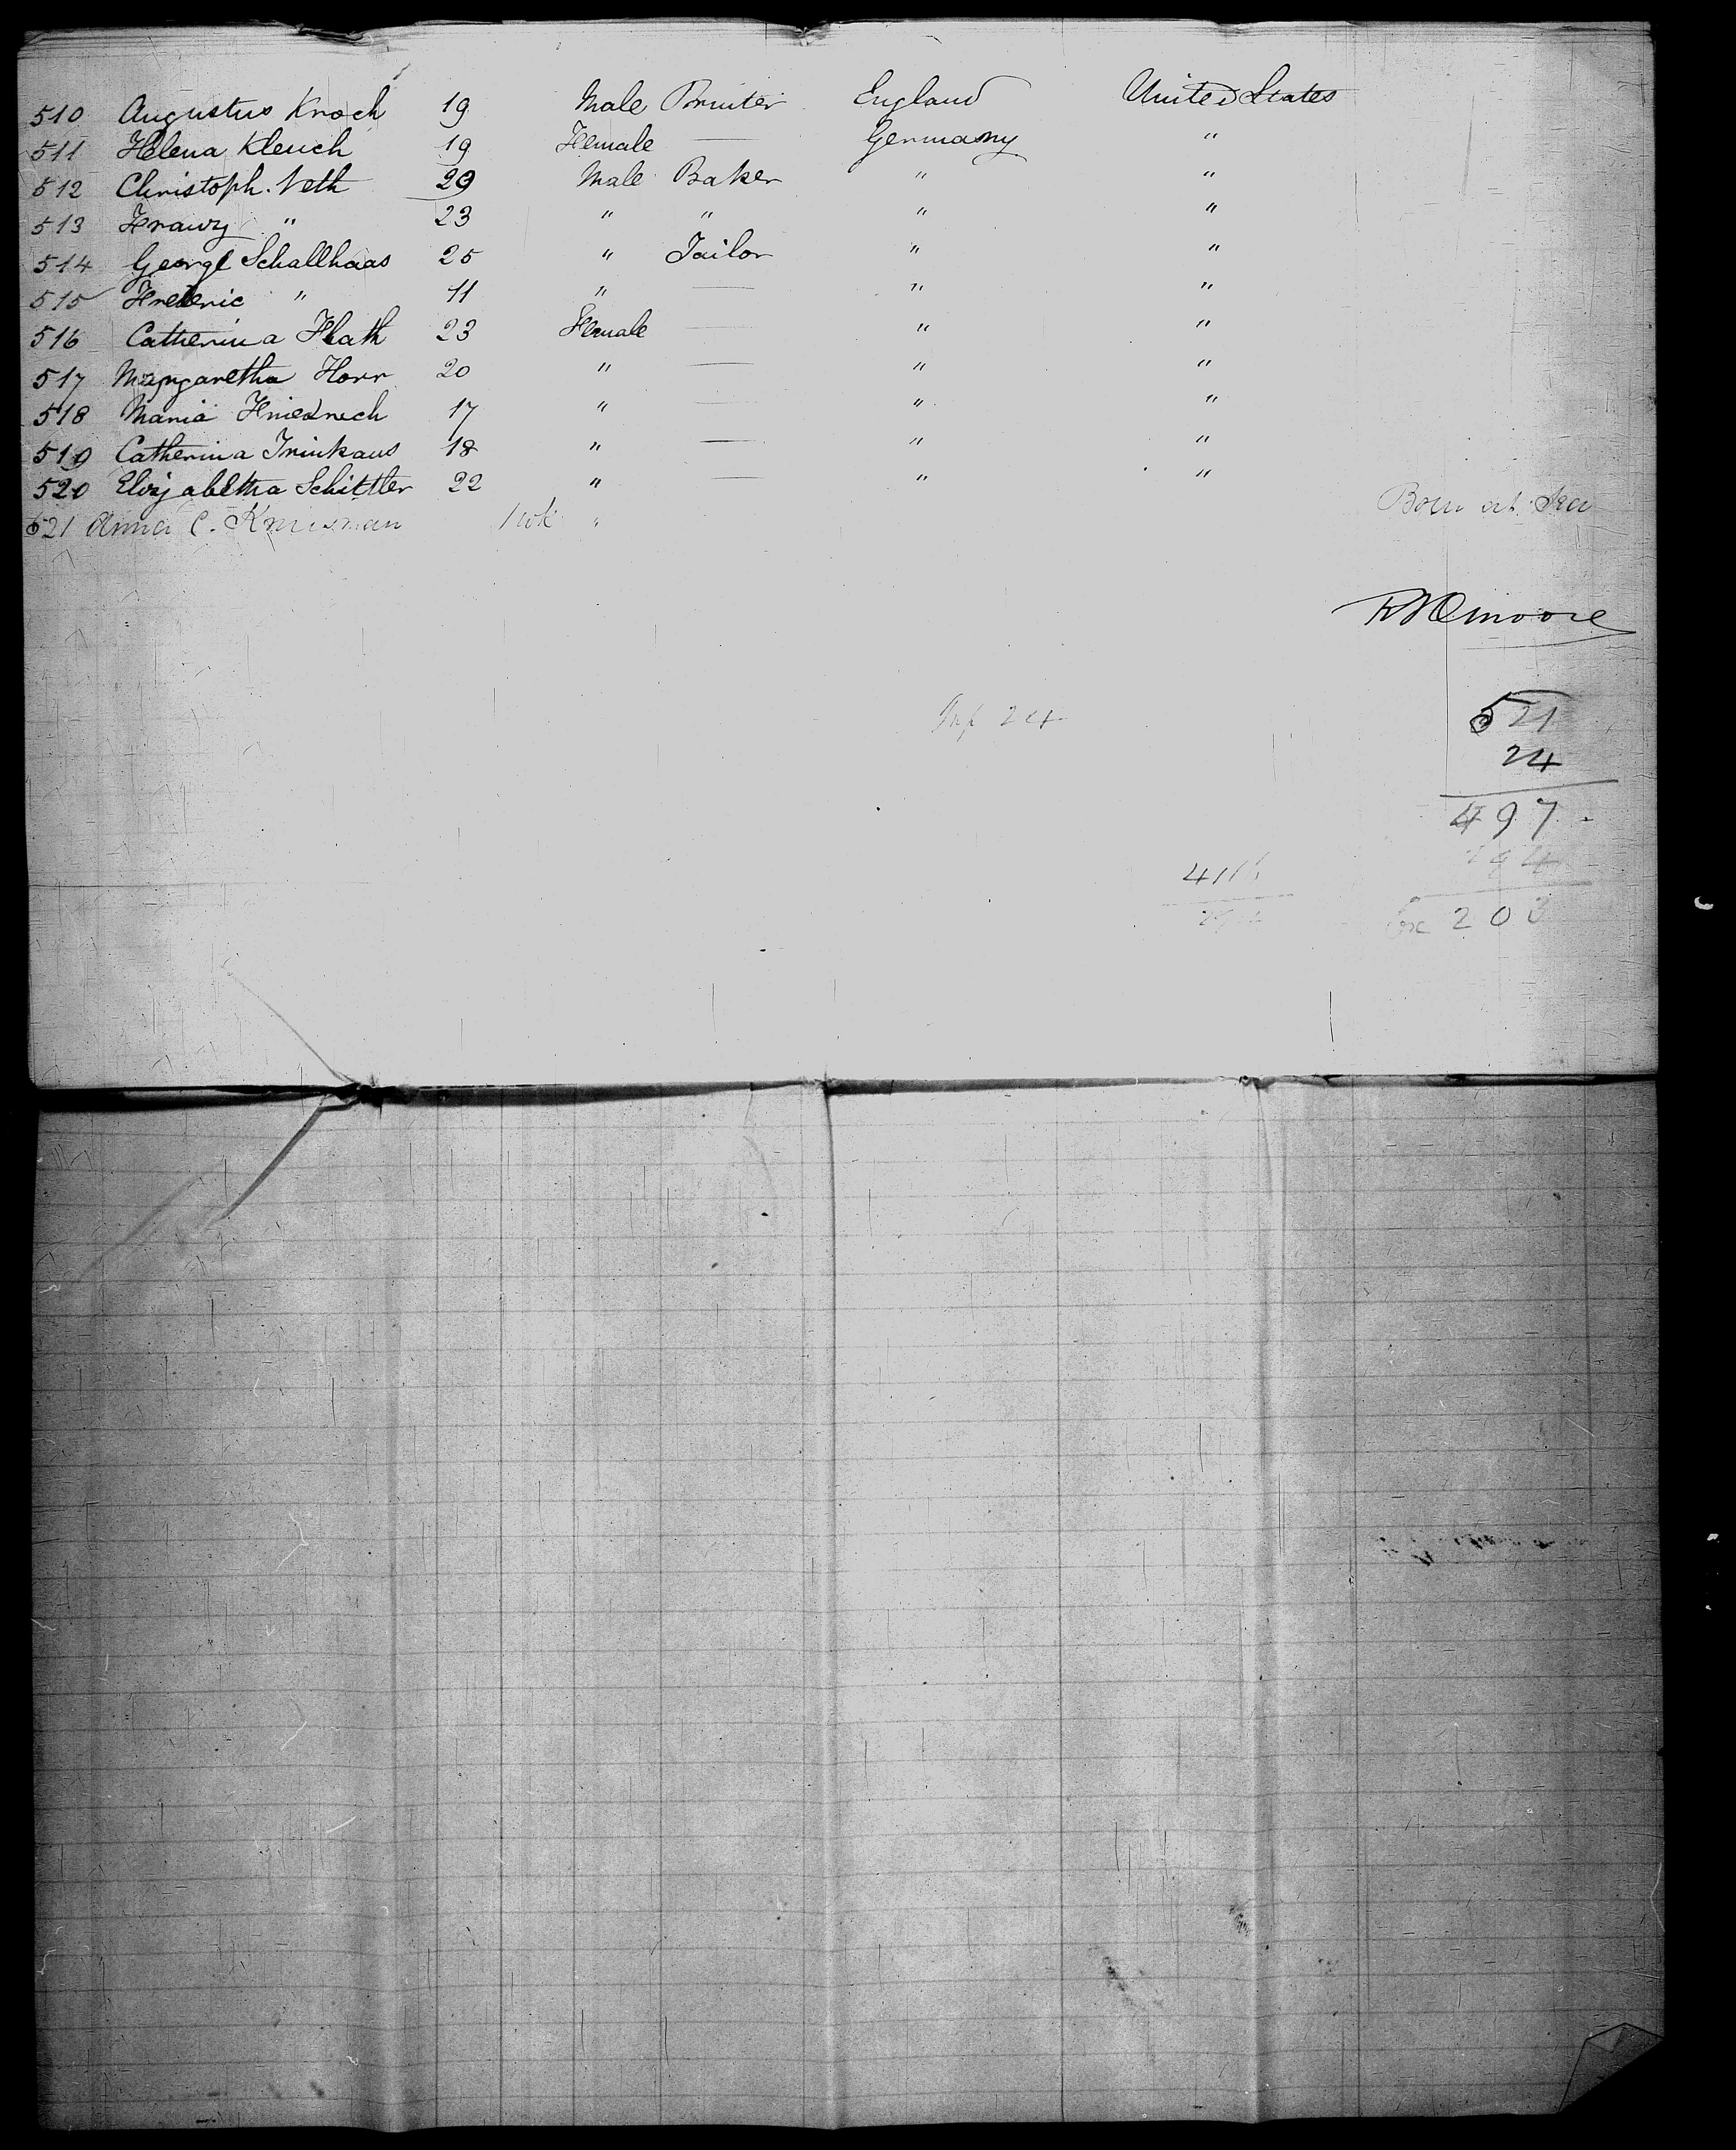 510 Augustus Kroch 19 Male Printer England United States
511 Helena Kleuch 19 Female — Germany "
512 Christoph. Veth 29 Male Baker " "
513 Franz " 23 " " " "
514 George Schallhaas 25 " Tailor " "
515 Frederic " 11 " — " "
516 Catherina Flath 23 Female — " "
517 Margaretha Horr 20 " — " "
518 Maria Friedrich 17 " — " "
519 Catherina Trinkaus 18 " — " "
520 Elizabetha Schittler 22 " — " "
521 Anna C. 1 wk " Born at Sea
Inf 24
521
24
497
203